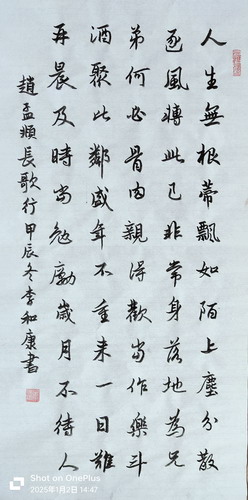 人生無根蒂飄如陌上塵分散
逐風轉此已非常身落地為兄
弟何必骨肉親得歡當作樂斗
酒聚此鄰盛年不重來一日難
再晨及時當勉勵歲月不待人
趙孟頫長歌行甲辰冬李和康書
Shot on OnePlus
2025年1月2日 14:47